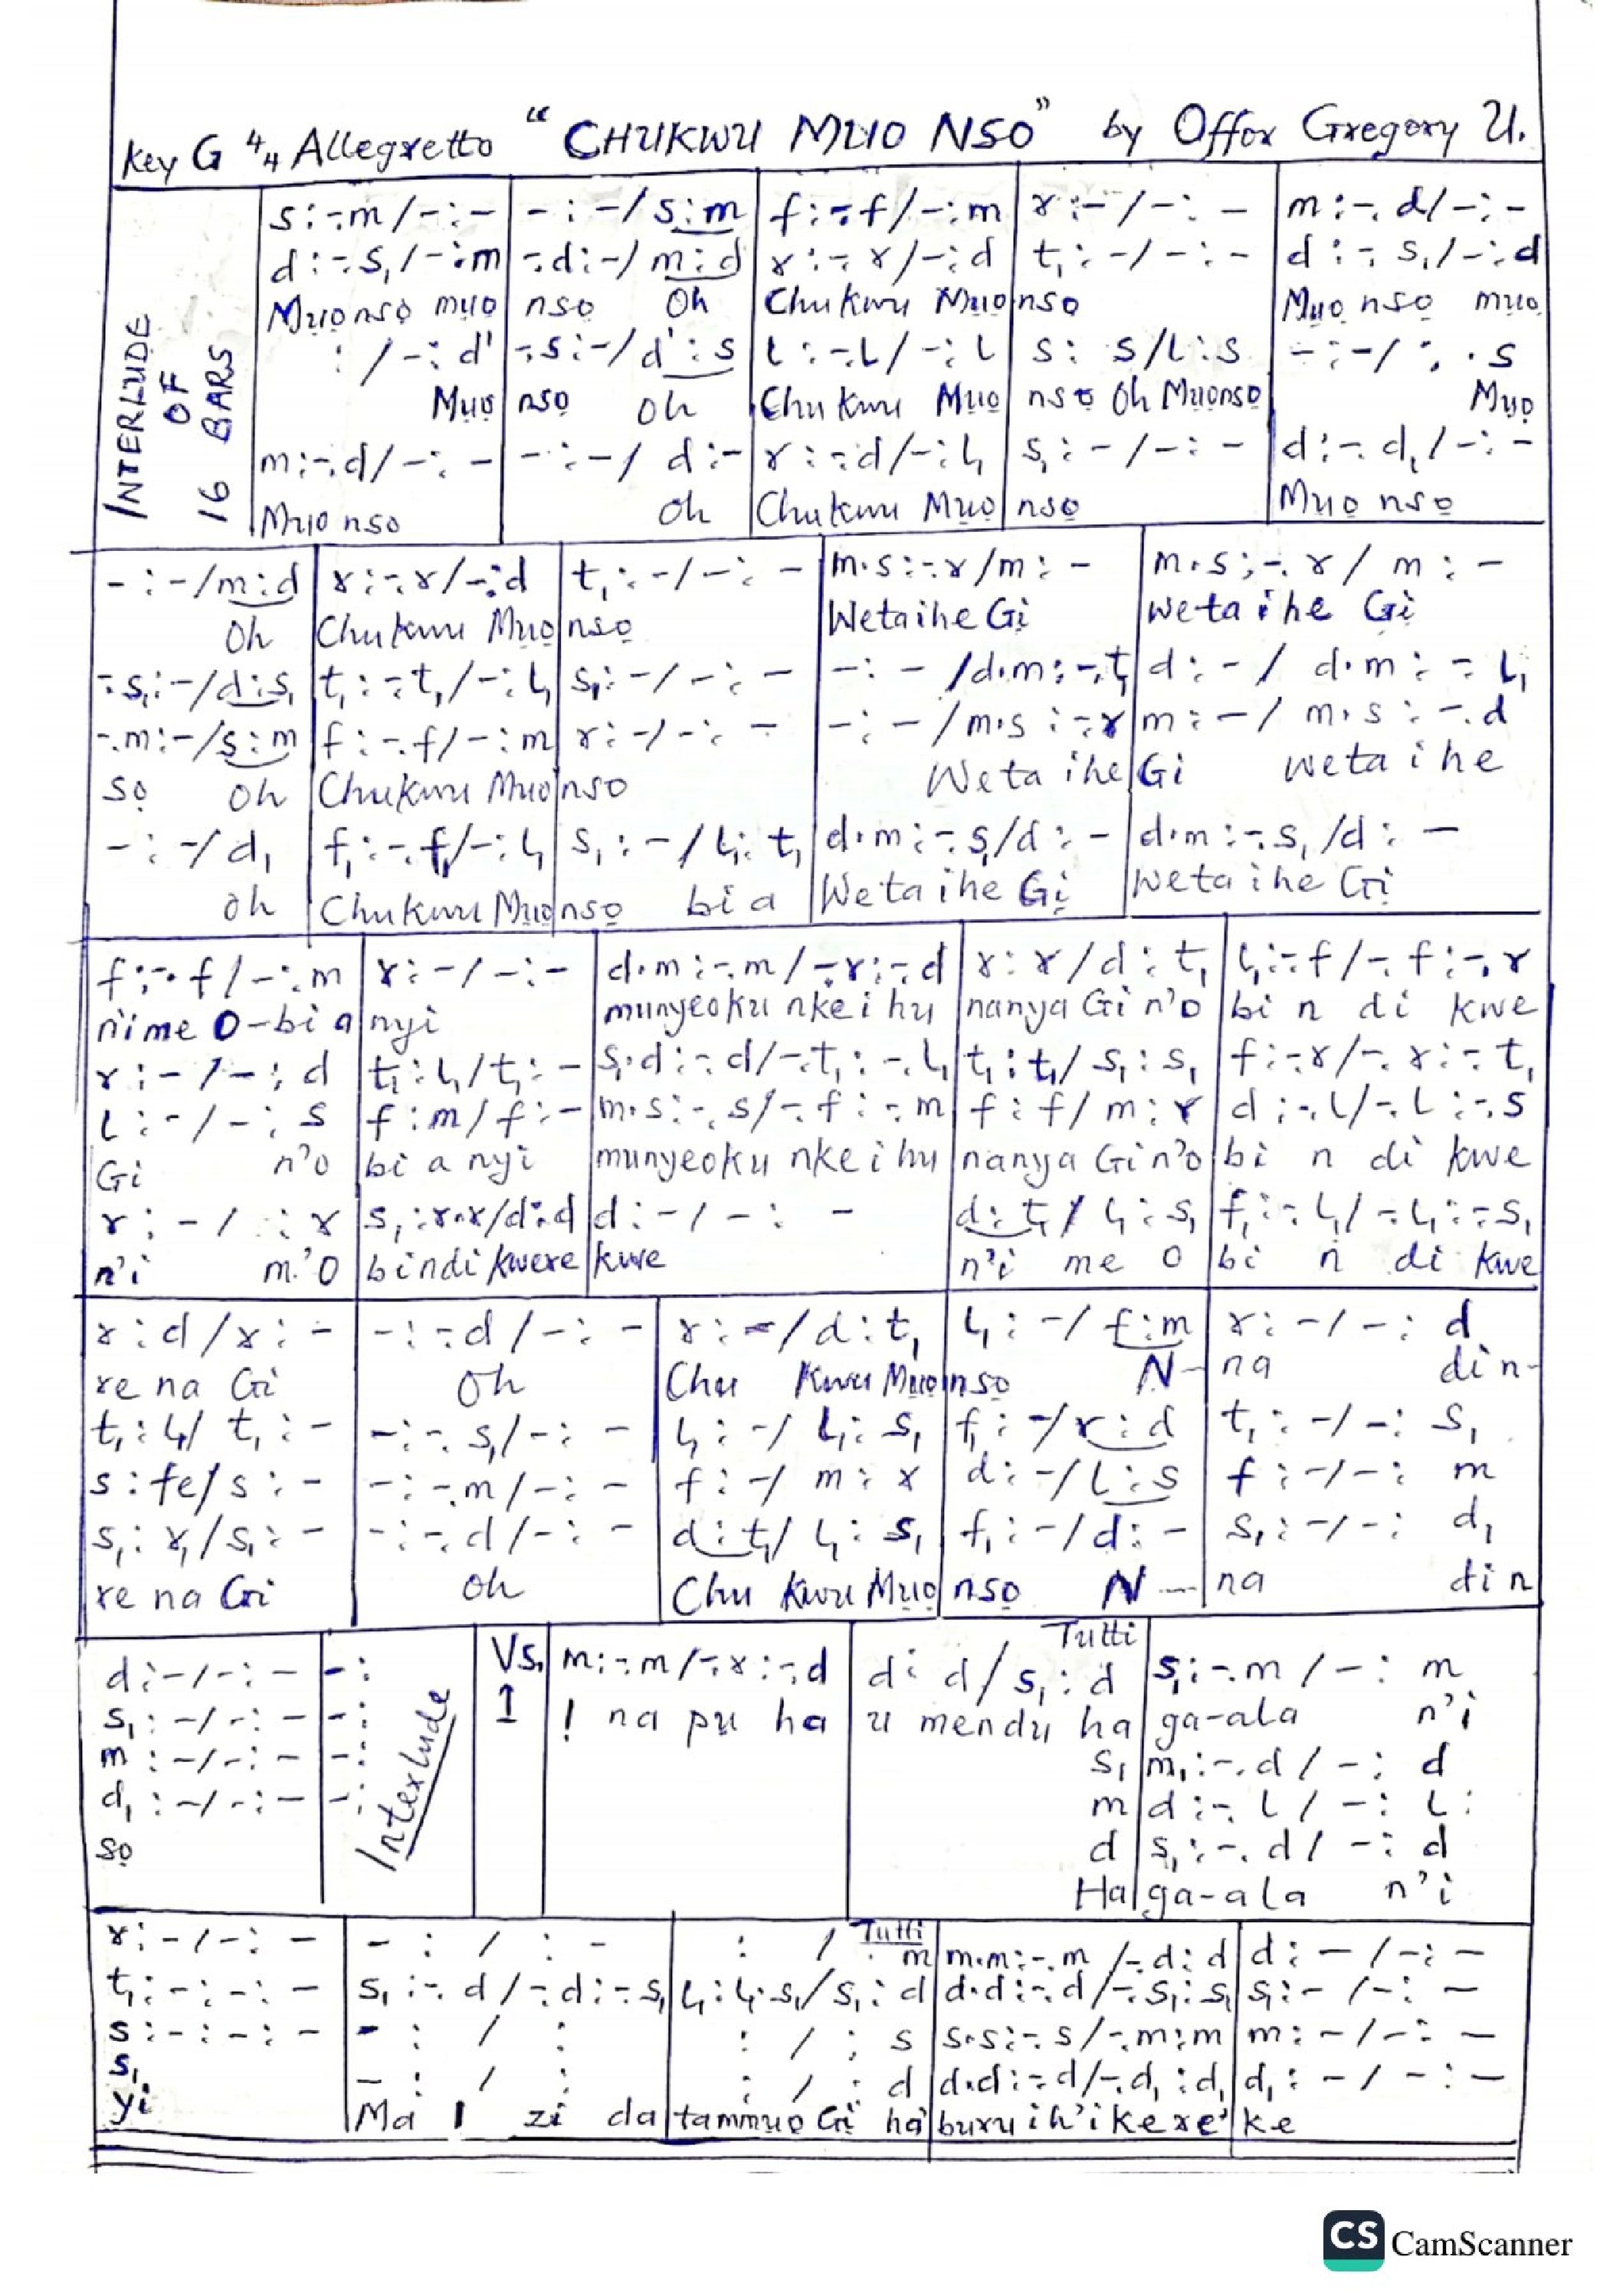 Key G 4/4 Allegretto "CHUKWU MỤỌ NSO" by Offor Gregory U.
INTERLUDE OF 16 BARS
s:-.m/-:- | -:-/s:m | f:-.f/-:m | r:-/-:- | m:-.d/-:-
d:-.s₁/-:m | -.d:-/m:d | r:-.r/-:d | t₁:-/-:- | d:-.s₁/-:d
Mụọ nsọ mụọ | nsọ Oh | Chukwu Mụọ | nsọ | Mụọ nsọ mụọ
: /-:d' | -.s:-/d':s | l:-.l/-:l | s: s/l:s | -:-/ : .s
Mụọ | nsọ oh | Chukwu Mụọ | nsọ Oh Mụọnsọ | Mụọ
m:-.d/-:- | -:-/d:- | r:-.d/-:l₁ | s₁:-/-:- | d:-.d₁/-:-
Mụọ nsọ | oh | Chukwu Mụọ | nsọ | Mụọ nsọ
-:-/m:d | r:-.r/-:d | t₁:-/-:- | m.s:-.r/m:- | m.s:-.r/m:-
Oh | Chukwu Mụọ | nsọ | Wetaihe Gị | weta ihe Gị
-.s₁:-/d:s₁ | t₁:-.t₁/-:l₁ | s₁:-/-:- | -:-/d.m:-.t₁ | d:-/d.m:-.l₁
-.m:-/s:m | f:-.f/-:m | r:-/-:- | -:-/m.s:-.r | m:-/m.s:-.d
sọ oh | Chukwu Mụọ | nsọ | Weta ihe | Gị weta ihe
-:-/d₁ | f₁:-.f₁/-:l₁ | s₁:-/l₁:t₁ | d.m:-.s₁/d:- | d.m:-.s₁/d:-
oh | Chukwu Mụọ | nsọ bia | Weta ihe Gị | weta ihe Gị
f:-.f/-:m | r:-/-:- | d.m:-.m/-.r:-.d | r:r/d:t₁ | l₁:-.f/-.f:-.r
n'ime O-bi a | nyi | munyeoku nke ihu | nanya Gi n'o | bi n di kwe
r:-/-:d | t₁:l₁/t₁:- | s₁.d:-.d/-.t₁:-.l₁ | t₁:t₁/s₁:s₁ | f:-.r/-.r:-.t₁
l:-/-:s | f:m/f:- | m.s:-.s/-.f:-.m | f:f/m:r | d:-.l/-.l:-.s
Gi n'o | bi a nyi | munyeoku nke ihu | nanya Gi n'o | bi n di kwe
r:-/ :r | s₁:r.r/d:d | d:-/-:- | d:t₁/l₁:s₁ | f₁:-.l₁/-.l₁:-.s₁
n'i m'O | bindi kwere | kwe | n'i me O | bi n di kwe
r:d/r:- | -:-.d/-:- | r:-/d:t₁ | l₁:-/f:m | r:-/-:d
re na Gi | Oh | Chu Kwu Mụọ | nsọ N- | na din-
t₁:l₁/t₁:- | -:-.s₁/-:- | l₁:-/l₁:s₁ | f₁:-/r:d | t₁:-/-:s₁
s:fe/s:- | -:-.m/-:- | f:-/m:r | d:-/l:s | f:-/-:m
s₁:r₁/s₁:- | -:-.d/-:- | d:t₁/l₁:s₁ | f₁:-/d:- | s₁:-/-:d₁
re na Gi | oh | Chu Kwu Mụọ | nsọ N- | na din
Tutti
d:-/-:- | -: | Vs. 1 | m:-.m/-.r:-.d | d:d/s₁:d | s₁:-.m/-:m
! na pu ha | u mendu ha | ga-ala n'i
s₁:-/-:- | -: | s₁ | m₁:-.d/-:d
m:-/-:- | -: | m | d:-.l/-:l:
d₁:-/-:- | -: | d | s₁:-.d/-:d
sọ | Interlude | Ha | ga-ala n'i
Tutti
r:-/-:- | -: / :- | : / : m | m.m:-.m/-.d:d | d:-/-:-
t₁:-:-:- | s₁:-.d/-.d:-.s₁ | l₁:l₁.s₁/s₁:d | d.d:-.d/-.s₁:s₁ | s₁:-/-:-
s:-:-:- | -: / : | : / : s | s.s:-.s/-.m:m | m:-/-:-
s₁ | -: / : | : / : d | d.d:-.d/-.d₁:d₁ | d₁:-/-:-
yi | Ma I zi da | tammụọ Gi ha | buru ih'ikere' | ke
CS CamScanner